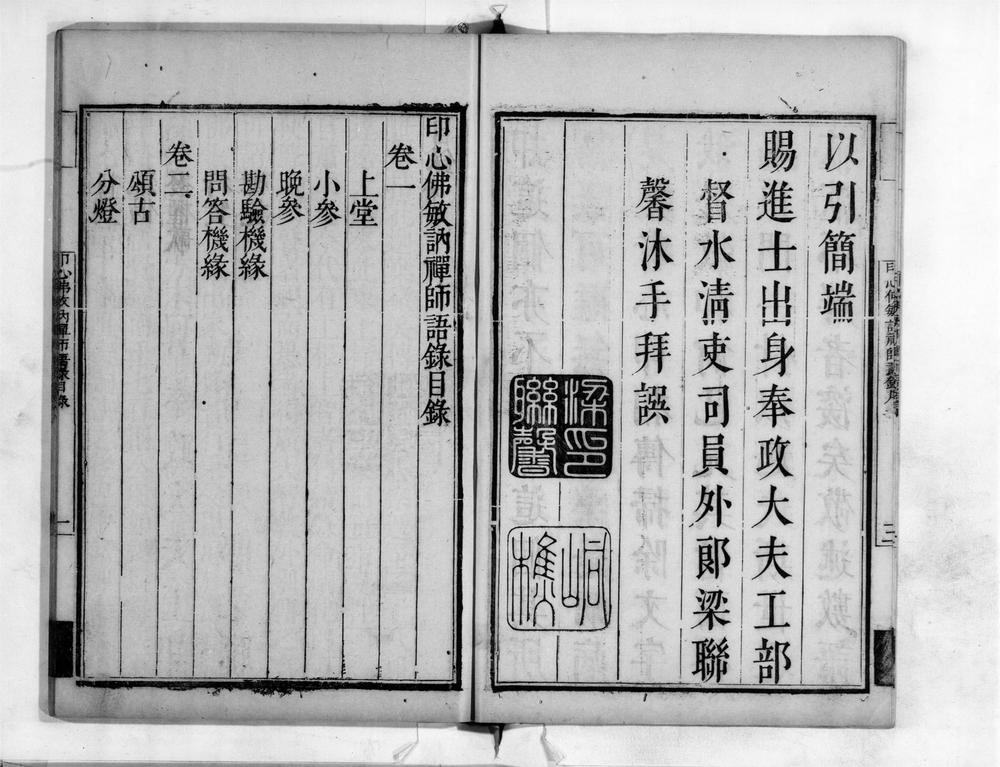 以引簡端
賜進士出身奉政大夫工部
督水清吏司員外郎梁聯
馨沐手拜譔
梁印聯馨
印心佛敏訥禪師語錄目錄
卷一
上堂
小參
晚參
勘驗機緣
問答機緣
卷二
頌古
分燈
印心佛敏訥禪師語錄目錄
一